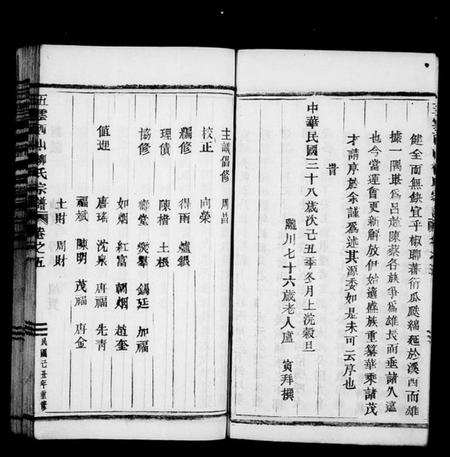 健全而無缺宜乎椒聊蕃衍瓜瓞綿延於溪西而雄
據一隅班爲呂趙陳蔡各族爭爲雄長而垂諸久遠
也今當運會更新解放伊始適盛族重纂華乘諸茂
才請序於余謹爲述其源委如是未可云序也
貴
中華民國三十八歲次己丑季冬月上浣穀旦
麗川七十六歲老人盧 寅拜撰
主議倡修 周昌
校正 向榮
編修 得雨 爐銀
理債 陳楷 土根
協修 壽堂 樊攀 錫廷 加福
如烟 紅富 朝烟 趙奎
值理 唐瑤 沈泉 唐福 先青
福斌 陳明 茂福 唐金
土財 周財
五雲西山柳氏宗譜 卷之五
民國己丑年重修